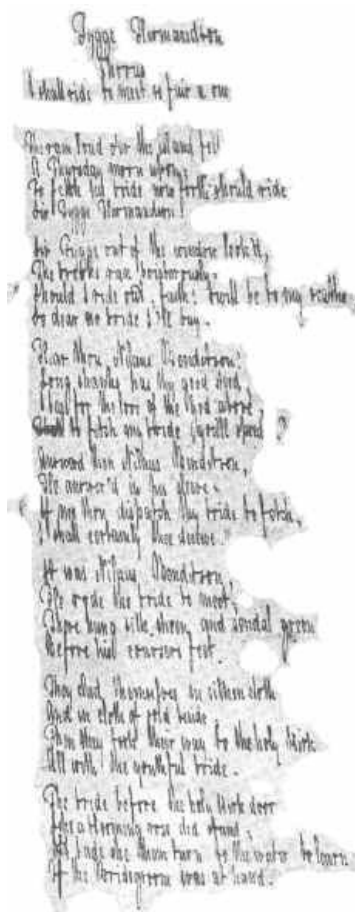 Tygge Hermandson
Chorus
I shall ride to meet so fair a one
The rain loud o'er the island fell
A Thursday morn upon,
To fetch his bride now forth should ride
Sir Tygge Hermandson.
Sir Tygge out of the window look'd,
The brooks ran boisterously.
Should I ride out, faith! 'twill be to my scathe
So dear no bride I'll buy.
Hear thou Nilaus Benditson!
Long shanks has thy good steed,
I beg for the love of the Lord above
to fetch my bride speed
Answered then Nilaus Benditson,
He answer'd in his
If me thou dispatch thy bride to fetch,
I shall certainly thee deceive."
It was Nilaus Benditson,
He rode the bride to meet;
There hung silk sheen, and sendal green
Before his coursers feet.
They clad themselves in silken cloth
And in cloth of gold beside
Then they took their way to the holy kirk
All with the youthful bride.
The bride before the holy kirk door
Like a blooming rose did stand,
she them turn to the water to learn
If the bridegroom was at hand.